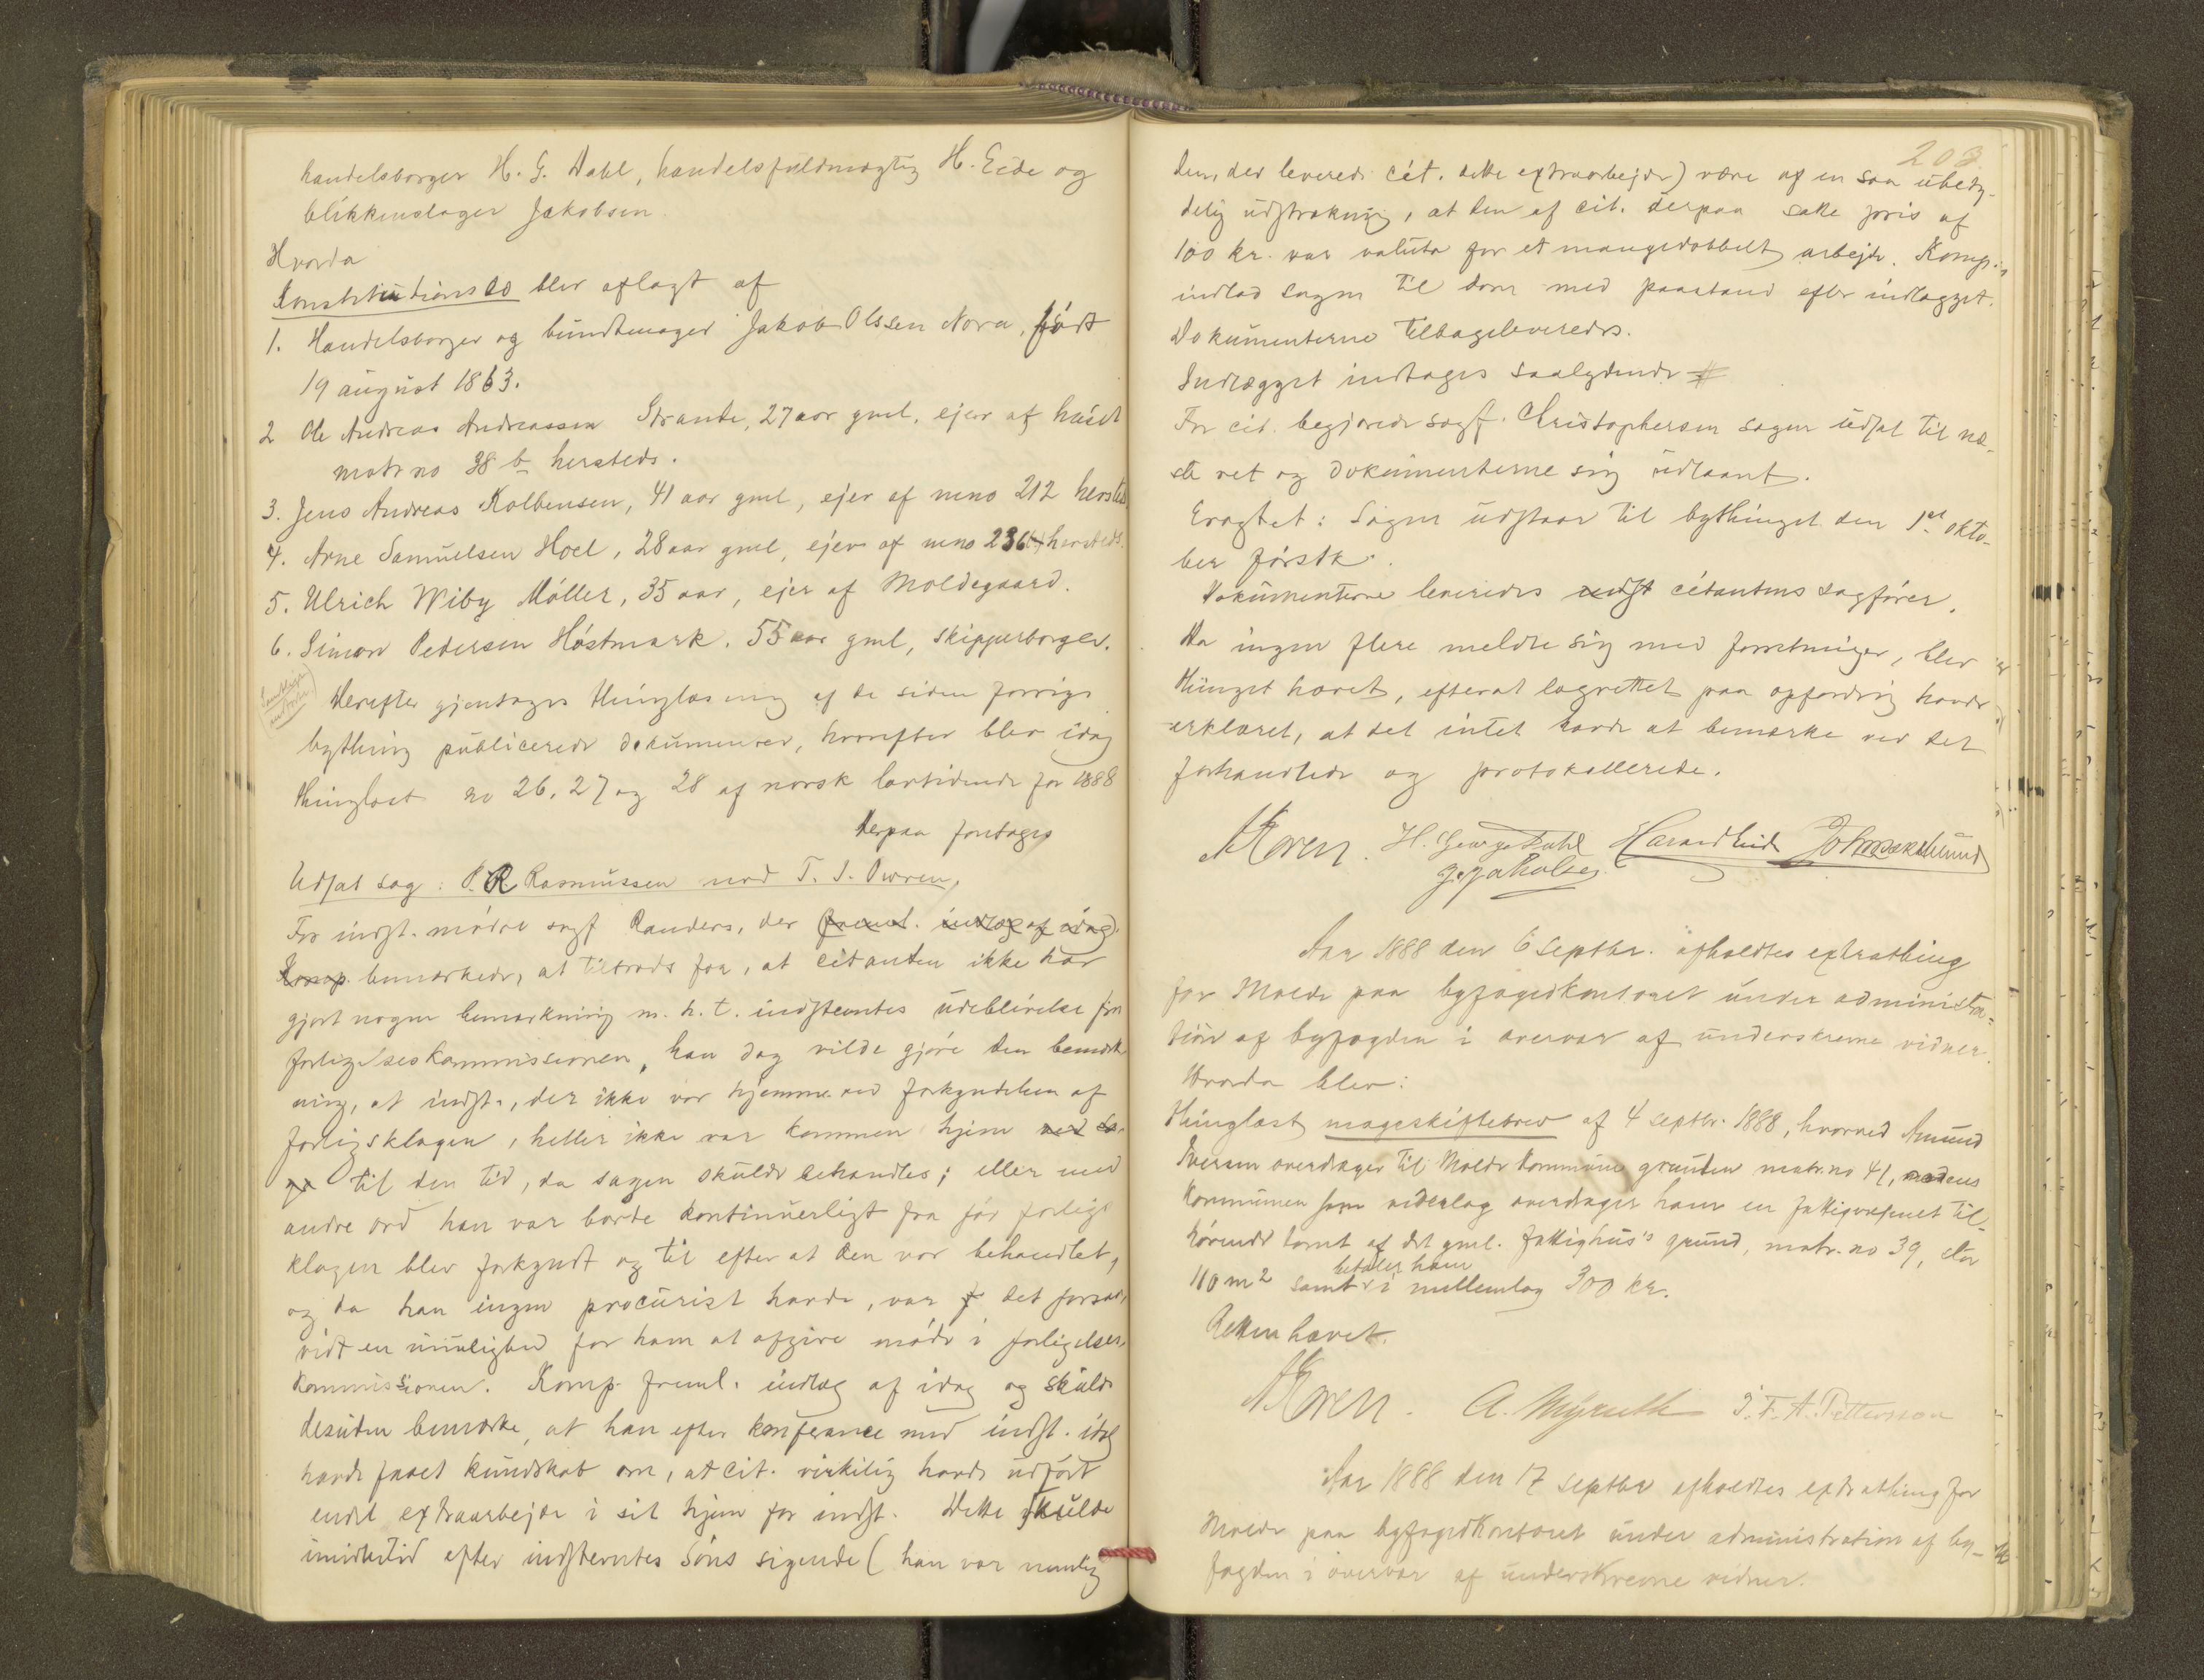 handelsborger H. G. Dahl, handelsfuldmægtig H. Eide og
blikkenslager Jakobsen.
Hvorda
Konstitutionsed blev aflagt af
1. Handelsborger og bundtmager Jakob Olsen Nora, født
19 august 1863.
2 Ole Andreas Andreassen Strande, 27 aar gml, ejer af huset
matr no 38 b hersteds.
3. Jens Andreas Kolbensen, 41 aar gml, ejer af mno 212 hersteds
4. Arne Samuelsen Hoel, 28 aar gml, ejer af mno 236 hersteds.
5. Ulrich Wiby Møller, 35 aar, ejer af Moldegaard.
6. Simon Pedersen Høstmark, 55 aar gml, skipperborger.
Derefter gjentoges thinglæsning af de siden forrige
bything publicerede dokumenter, hvorefter blev idag
thinglæst no 26, 27 og 28 af norsk lovtidende for 1888
Derpaa foretoges
Udsat sag: P. R. Rasmussen mod T. J. Owren,
For indst. mødte sagf Randers, der freml. indlæg af idag.
Komp. bemærkede, at tiltrods for, at citanten ikke har
gjort nogen bemærkning m. h. t. indstevntes udeblivelse fra
forligelseskommissionen, han dog vilde gjøre den bemærk-
ning, at indst., der ikke var hjemme ved forkyndelsen af
forligsklagen, heller ikke var kommen hjem ved sa-
ge til den tid, da sagen skulde behandles; eller med
andre ord han var borte kontinuerligt fra før forligs
klagen blev forkyndt og til efter at den var behandlet,
og da han ingen procurist havde, var f det forsaa-
vidt en umulighed for ham at afgive møde i forligelses-
kommissionen. Komp. freml. indlæg af idag og skulde
desuden bemærke, at han efter konferance med indst. idag
havde faaet kundskab om, at cit. virkelig havde udført
endel extraarbejde i sit hjem for indst. Dette skulde
imidlertid efter indstevntes søns sigende (han var nemlig
203
den, der leverede cit. dette extraarbejde) være af en saa ubety-
delig udstrækning, at den af cit. derpaa satte pris af
100 kr. var valuta for et mangedobbelt arbejde. Komp.
indlod sagen til dom med paastand efter indlægget.
Dokumenterne tilbageleveredes.
Indlægget indtages saalydende #
For cit. begjærede sagf. Christophersen sagen udsat til næ-
ste ret og dokumenterne sig udlaant.
Eragtet: Sagen udstaar til bythinget den 1st okto-
ber førstk.
Dokumenterne leveredes indst citantens sagfører.
Da ingen flere meldte sig med forretninger, blev
thinget hævet, efterat lagrettet paa opfordring havde
erklæret, at det intet havde at bemærke ved det
forhandlede og protokollerede.
H. George Dahl Harald Eide
J. Jakobsen
Aar 1888 den 6 septbr. afholdtes extrathing
for Molde paa byfogedkontoret under administra-
tion af byfogden i overvær af underskrevne vidner.
Hvorda blev:
Thinglæst mageskiftebrev af 4 septbr. 1888, hvorved Amund
Iversen overdrager til Molde kommune grunden matr. no 41, medens
kommunen som vederlag overdrager ham en fattigvæsenet til-
hørende tomt af det gml. fattighus's grund, matr. no 39, stor
betaler ham
110 m2 samt i mellemlag 300 kr.
Retten hævet.
A. Myruth J. F. A. Pettersson
Aar 1888 den 17 septbr afholdtes extrathing for
Molde paa byfogedkontoret under administration af by-
fogden i overvær af underskrevne vidner.